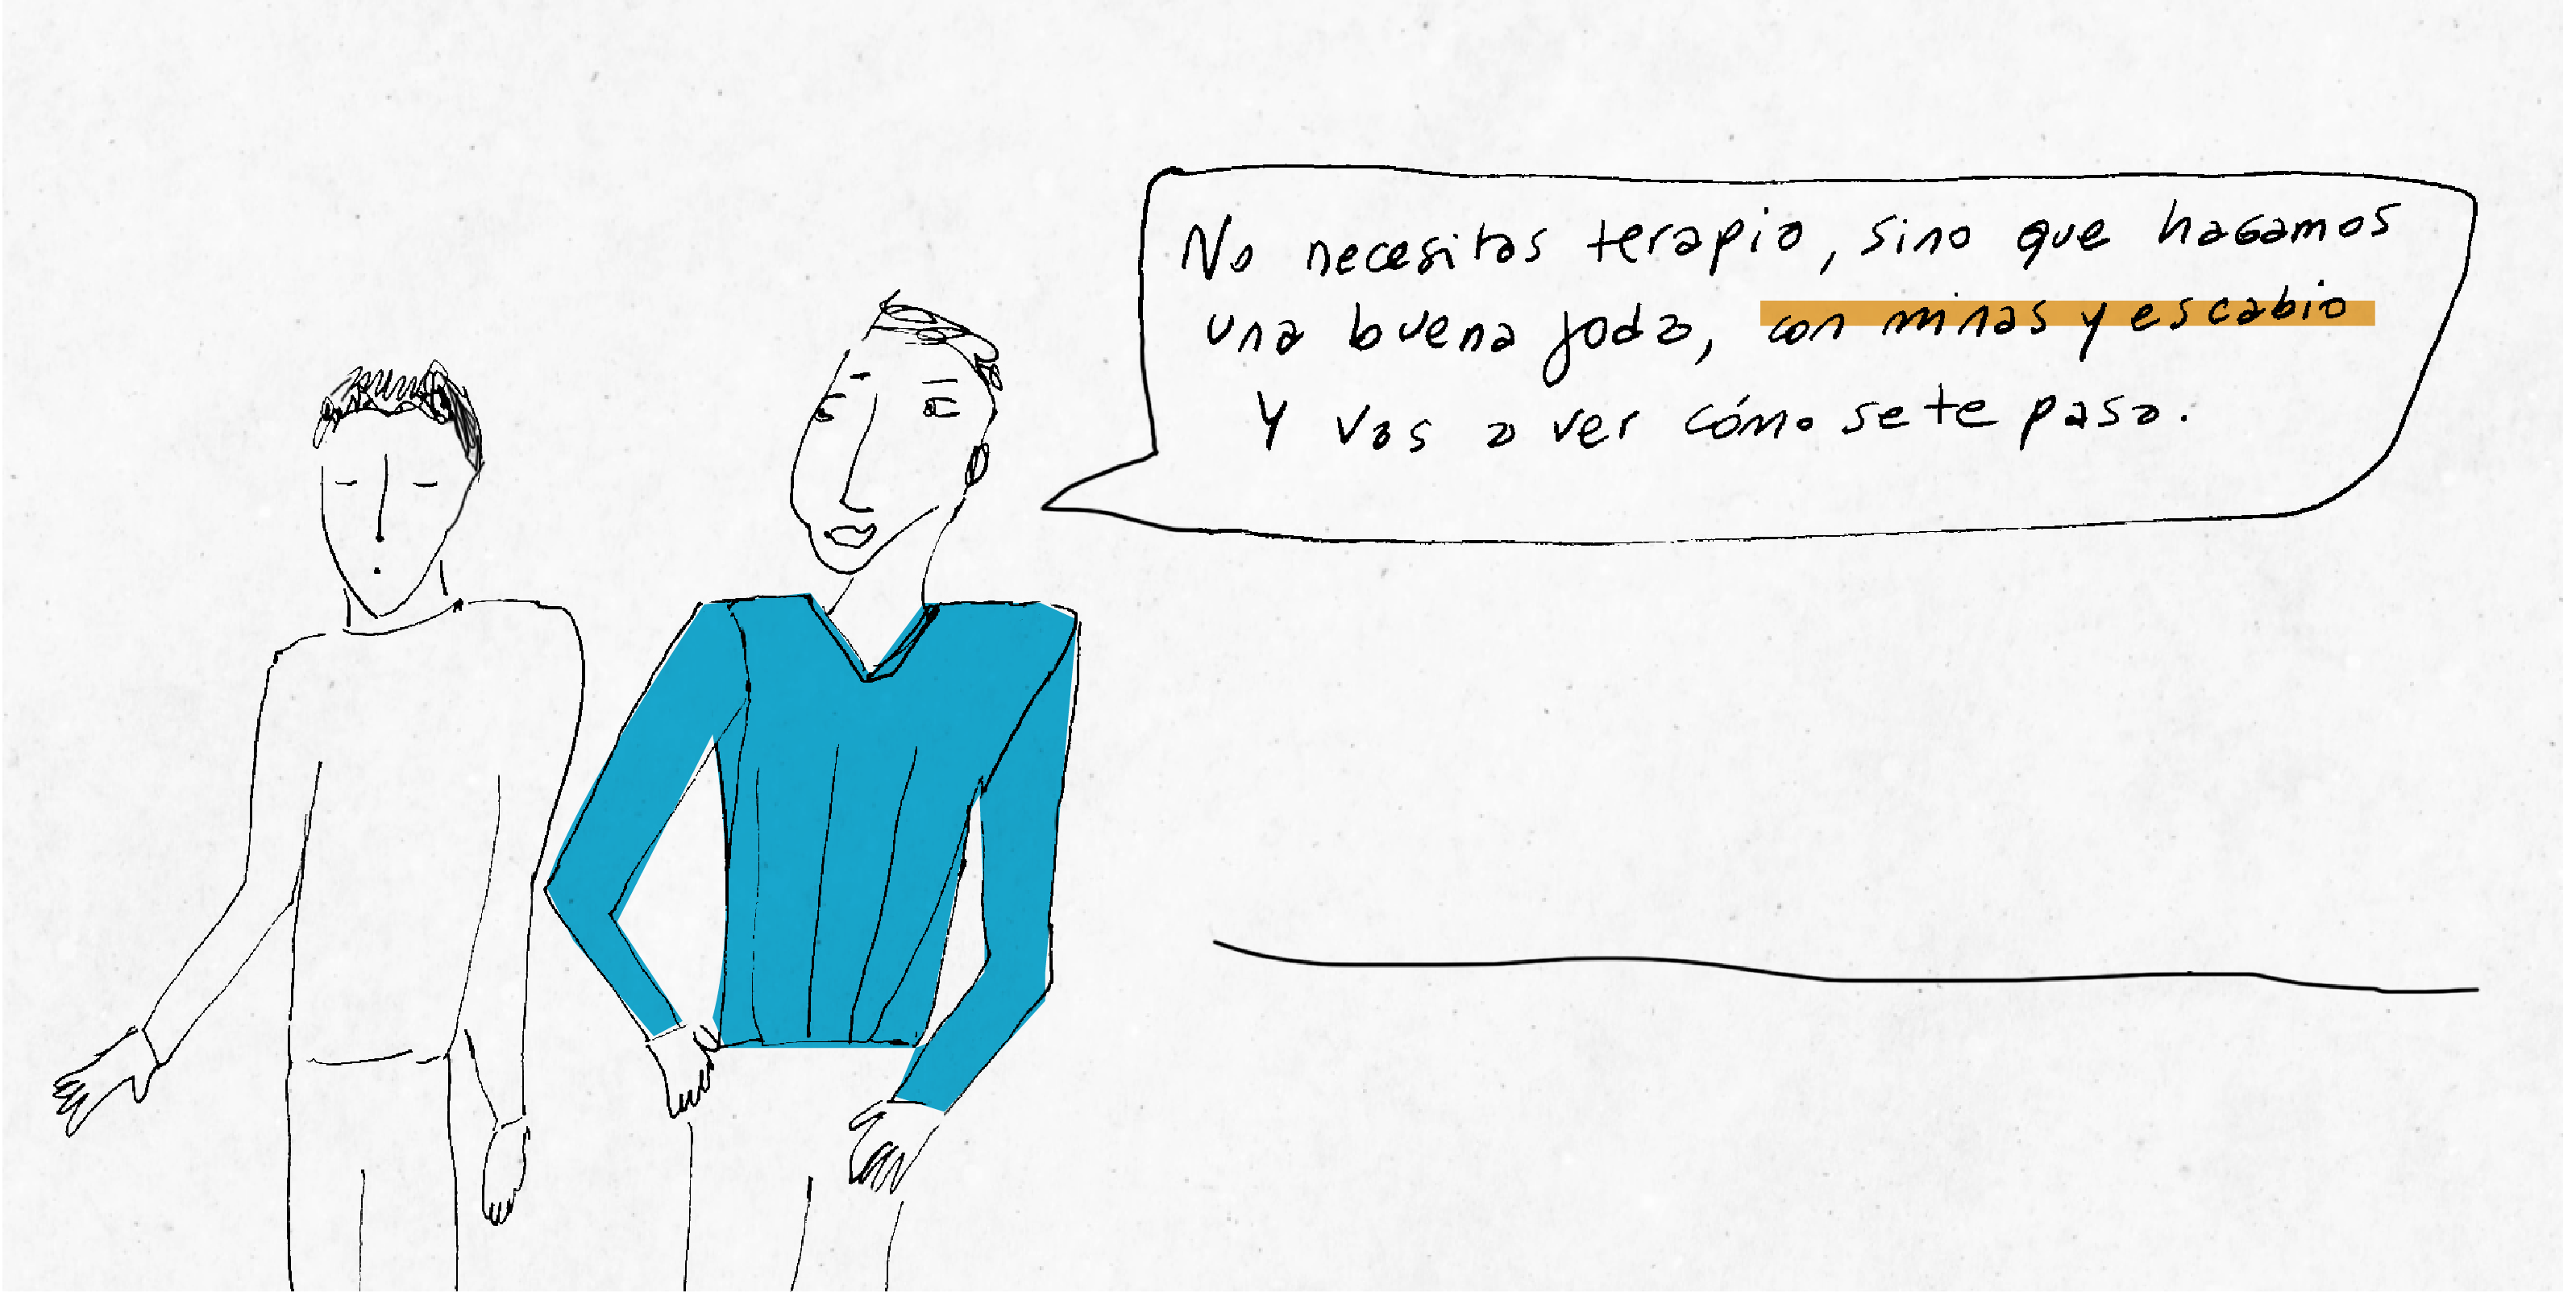 No necesitas terapia, sino que hagamos
una buena joda, con minas y escabio
Y vas a ver cómo se te pasa.